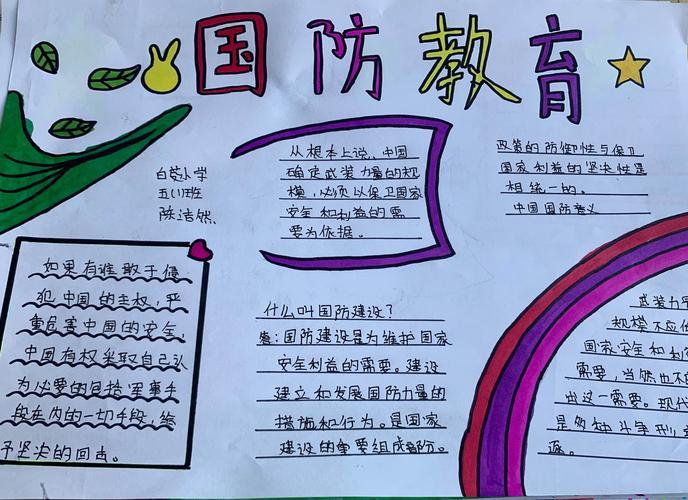 国防教育
白莰小学
五(1)班
陈洁然
从根本上说，中国
确定武装力量的规
模，必须以保卫国家
安全和利益的需
要为依据。
政策的防御性与保卫
国家利益的坚决性是
相统一的。
中国国防意义
如果有谁敢于侵
犯中国的主权，严
重危害中国的安全，
中国有权采取自己认
为必要的包括军事手
段在内的一切手段，给
予坚决的回击。
什么叫国防建设？
答：国防建设是为维护国家
安全利益的需要。建设
建立和发展国防力量的
措施和行为。是国家
建设的重要组成部份。
武装力量
规模不应
国家安全和利
需要，当然也不
出这一需要。现代
是多种斗争形